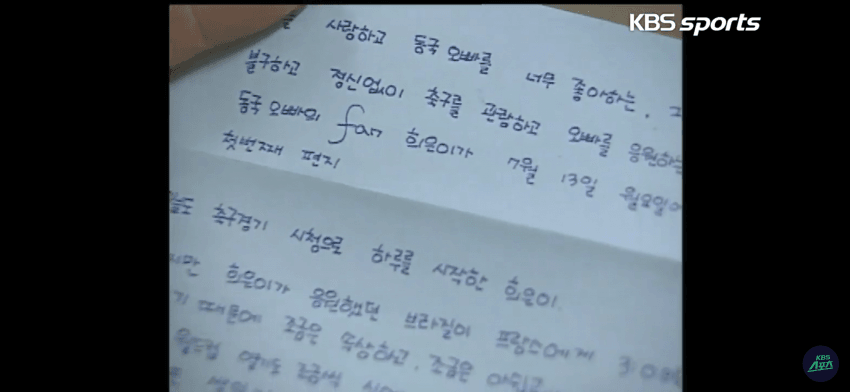 KBS sports
를 사랑하고 동국 오빠를 너무 좋아하는.
불구하고 정신없이 축구를 관람하고 오빠를 응원하는
동국 오빠의 fan 희은이가 7월 13일 월요일에
첫번째 편지!
축구경기 시청으로 하루를 시작한 희은이.
희은이가 응원했던 브라질이 프랑스에게 3:0
기 때문에 조금은 속상하고, 조금은
월드컵 열기도 조금씩
KBS
스포츠